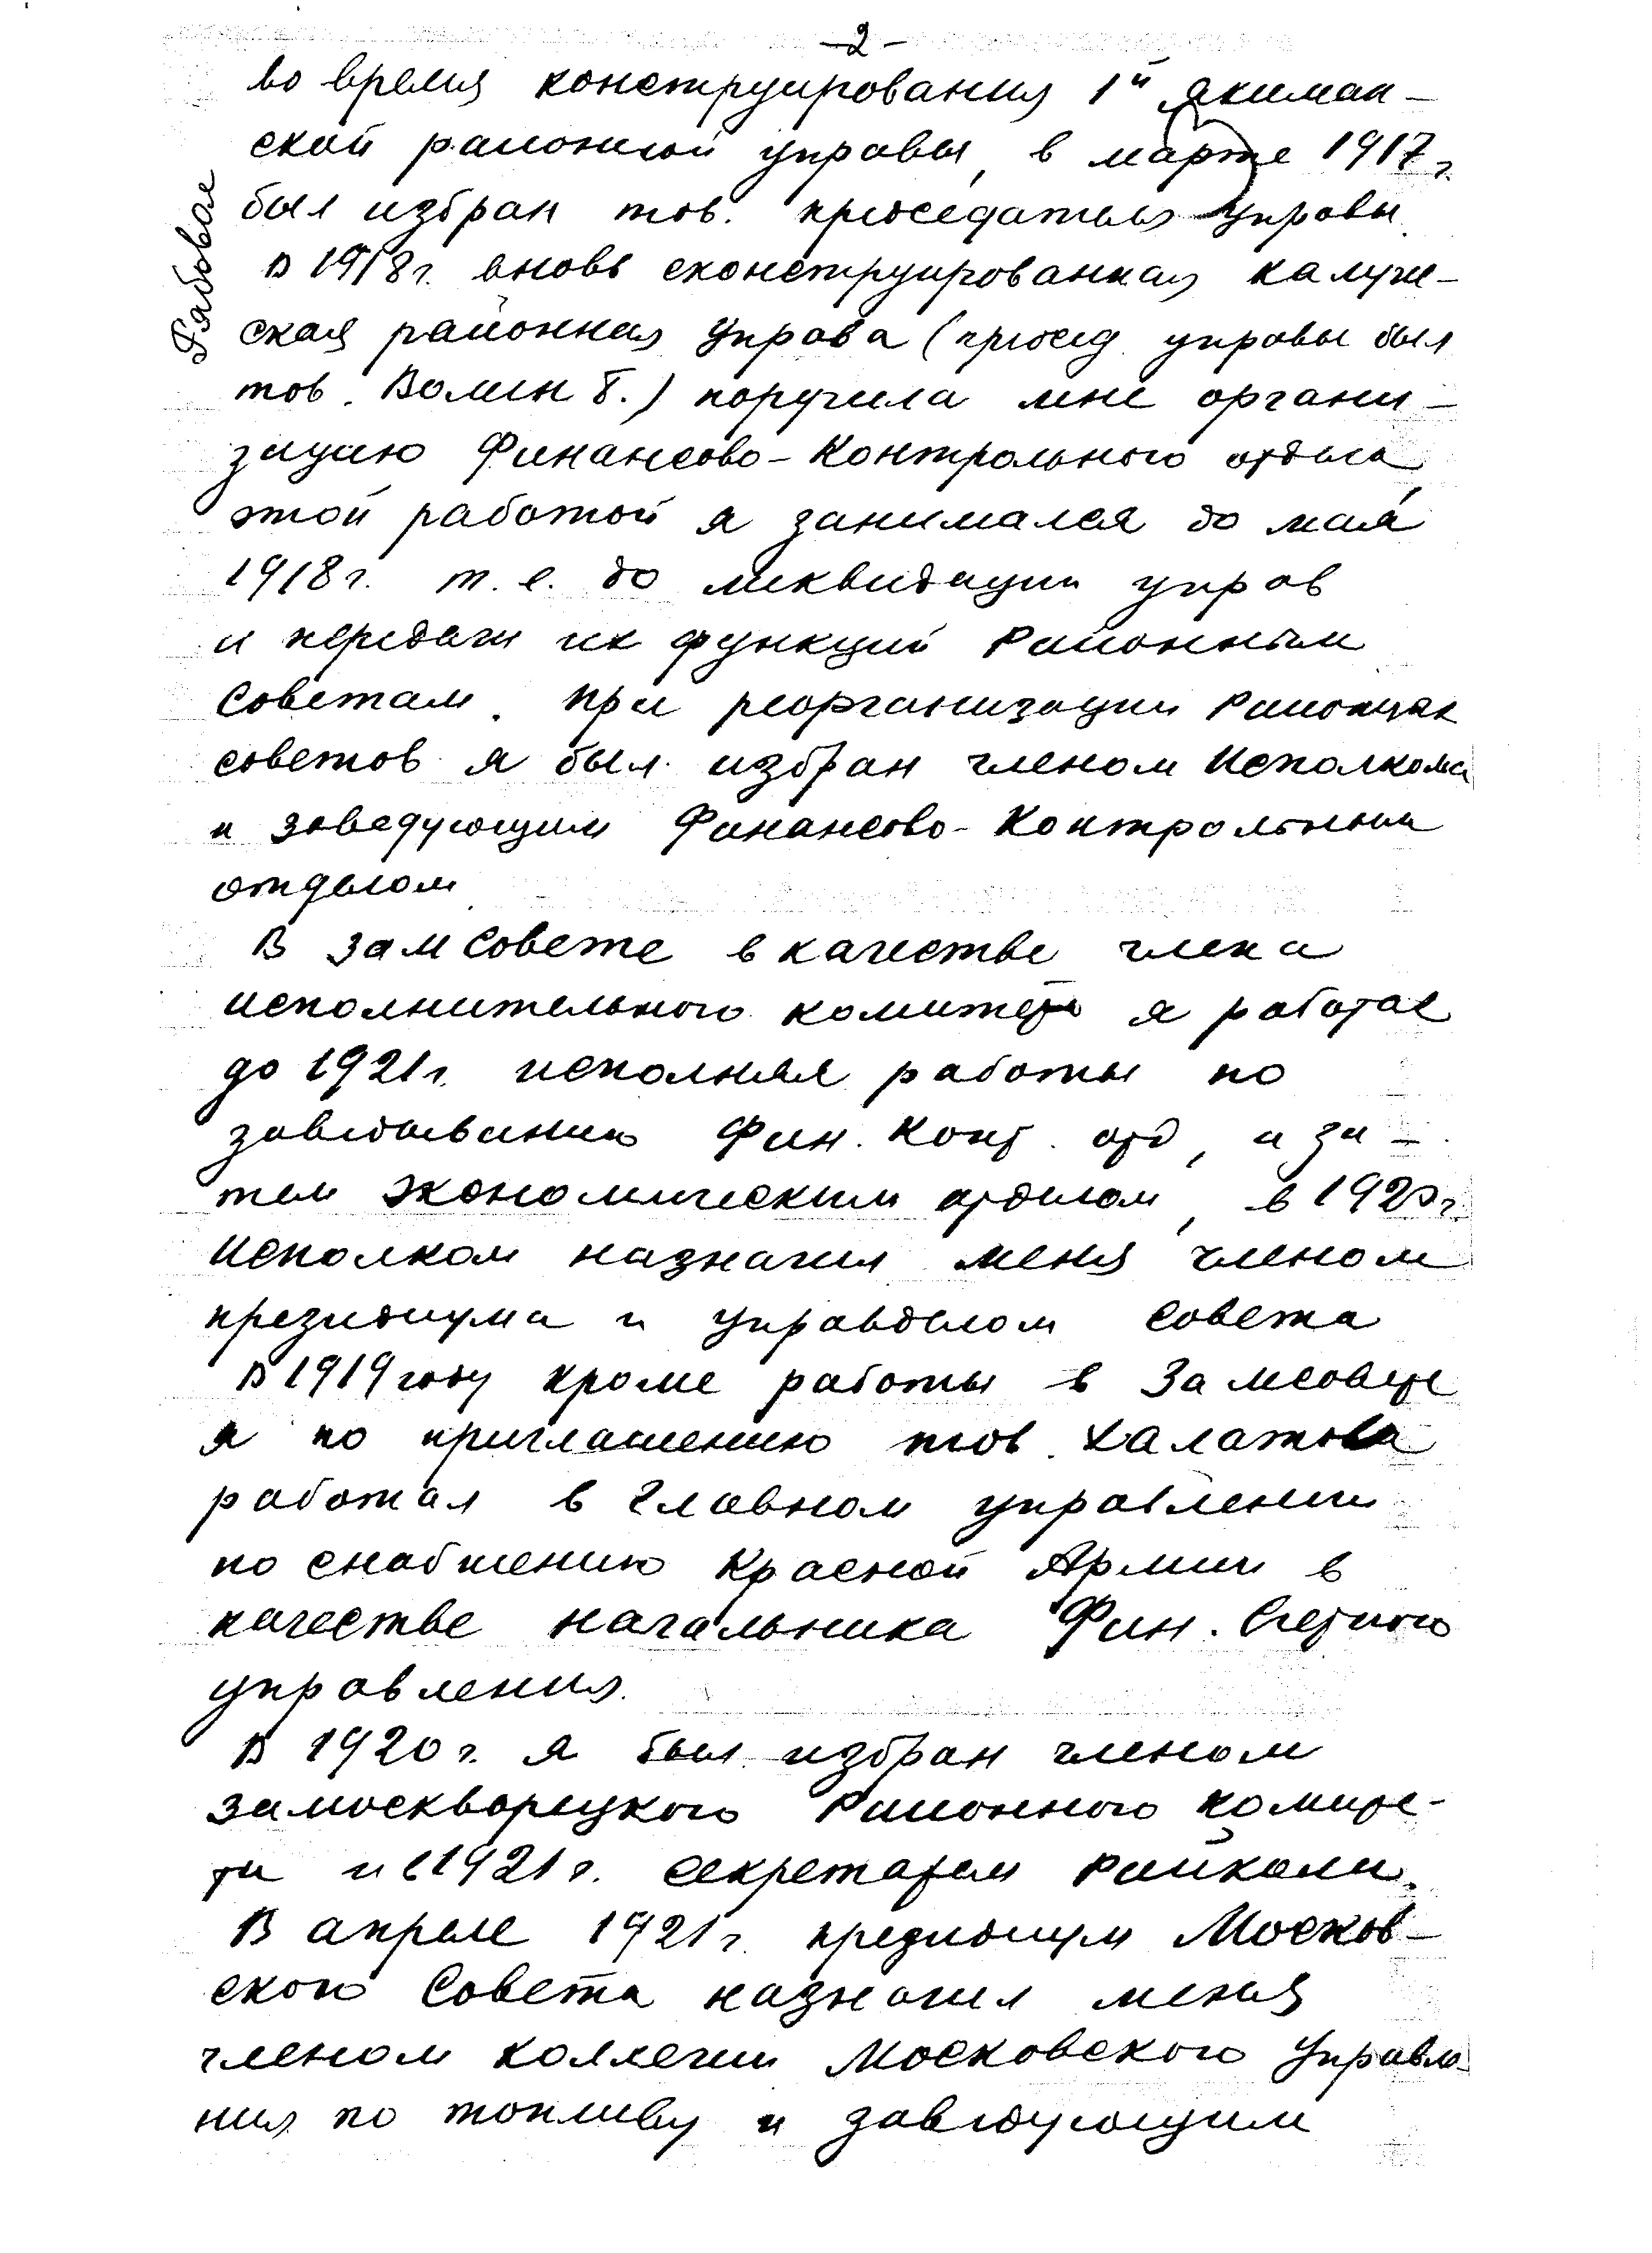 -2-
во время конструирования 1й Якиман-
ской районной управы, в марте 1917г.
был избран тов. председателя Управы.
В 1918г. вновь сконструированная Калуж-
ская районная Управа (председ. управы был
тов. Волин Б.) поручила мне органи-
зацию Финансово-Контрольного отдела,
этой работой я занимался до мая
1918г. т.е. до ликвидации управ
и передачи их функций Районным
Советам. При реорганизации Районных
советов я был избран членом Исполкома
и заведующим Финансово-Контрольным
отделом
В ЗамСовете в качестве члена
исполнительного комитета я работал
до 1921г. исполняя работы по
заведыванию Фин. Конт. отд, а за-
тем экономическим отделом, в 1920г.
Исполком назначил меня членом
президиума и управделом Совета
В 1919 году кроме работы в Замсовете
я по приглашению тов. Халатова
работал в Главном управлении
по снабжению Красной Армии в
качестве начальника Фин. Счетного
управления.
В 1920г. я был избран членом
Замоскворецкого Районного комите-
та и в 1921г. секретарем Райкома.
В апреле 1921г. президиум Москов-
ского Совета назначил меня
членом коллегии Московского Управле-
ния по топливу и заведующим